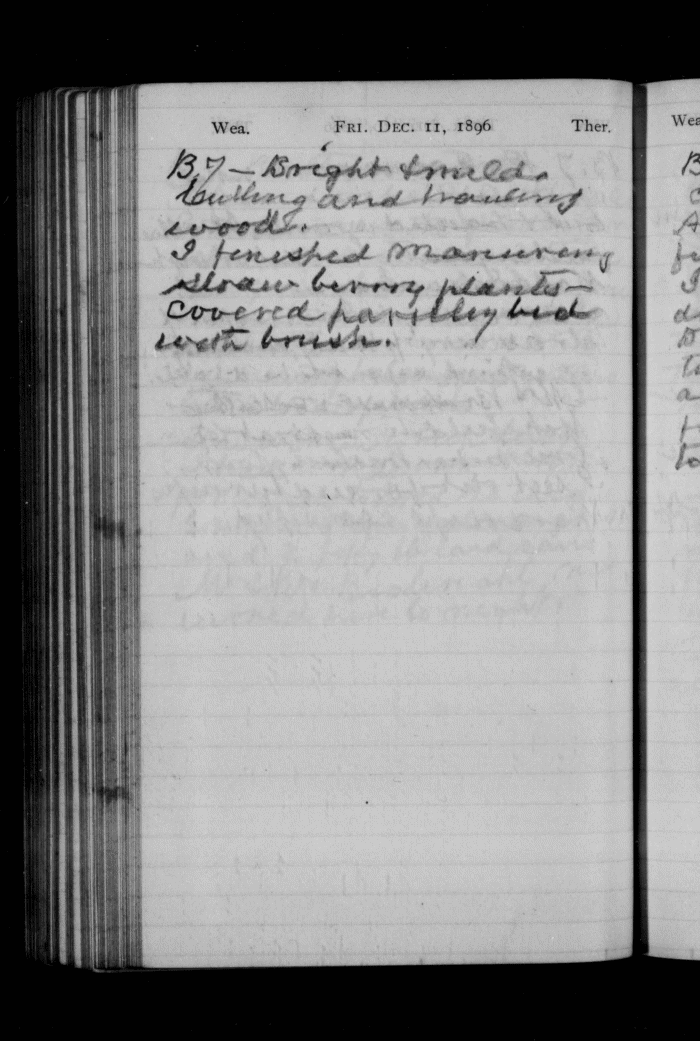 Wea. Fri. Dec. 11, 1896 Ther.
B 7 — Bright & mild.
Cutting and hauling
wood.
I finished manureing
straw berry plants —
covered parsley bed
with brush.
Wea